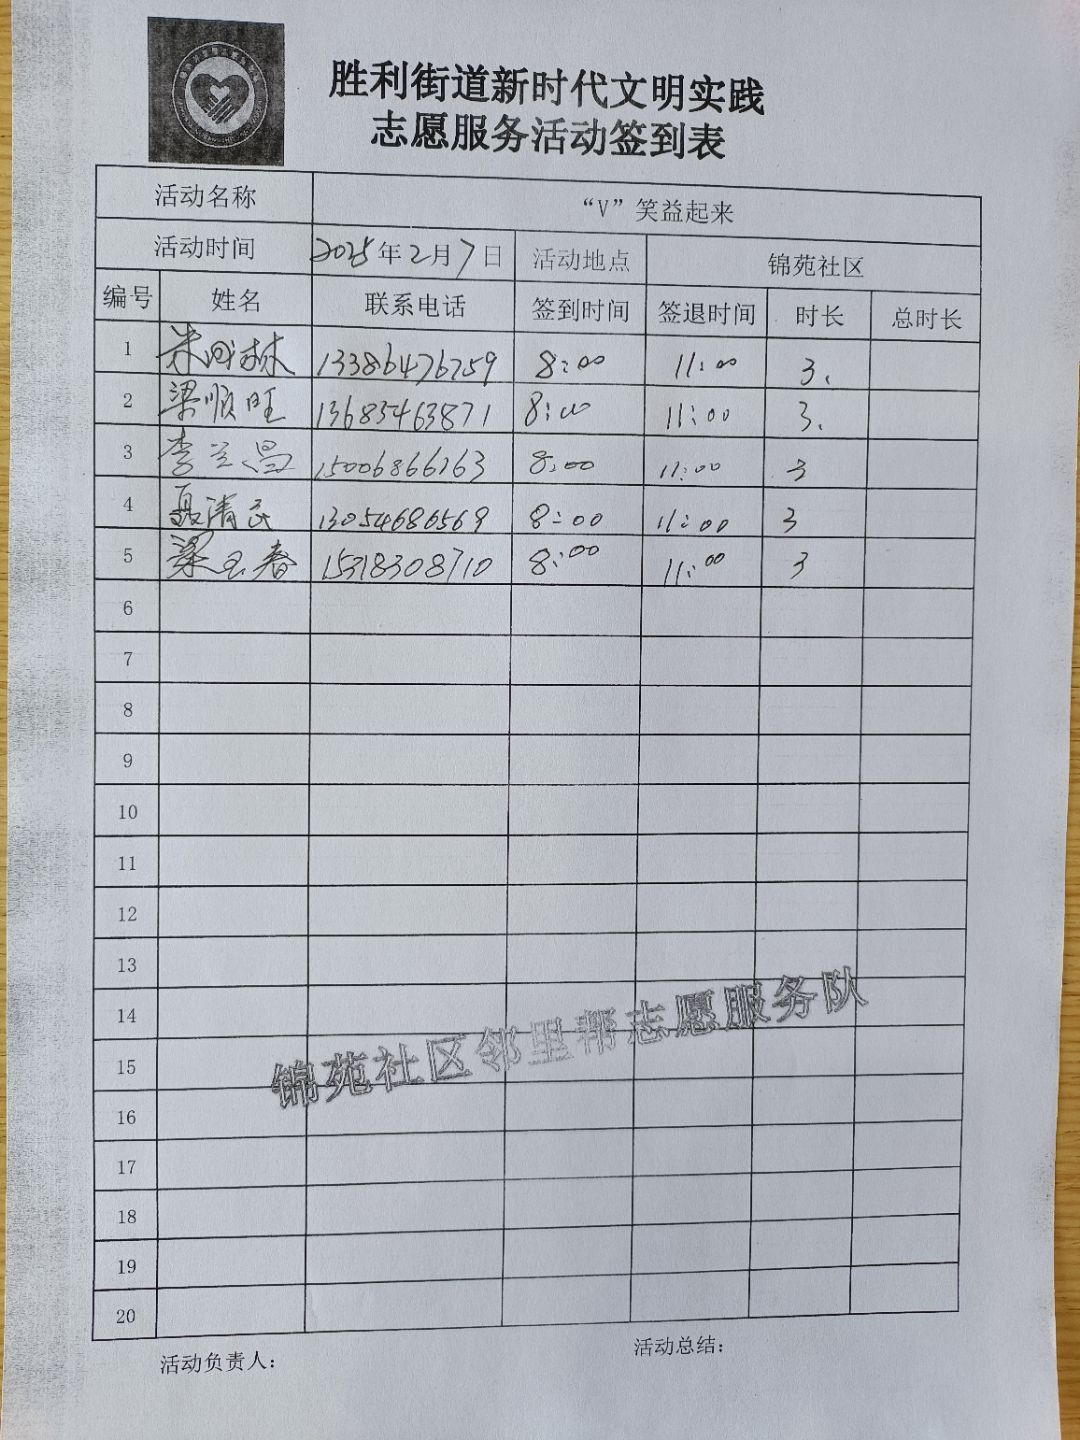 胜利街道新时代文明实践
志愿服务活动签到表
活动名称 “V”笑益起来
活动时间 2025年2月7日 活动地点 锦苑社区
编号 姓名 联系电话 签到时间 签退时间 时长 总时长
1 13386476759 8:00 11:00 3.
2 梁顺旺 13685463871 8:00 11:00 3.
3 李兰昌 15006866763 8:00 11:00 3
4 聂清民 13054686569 8:00 11:00 3
5 梁玉春 15318308710 8:00 11:00 3
6
7
8
9
10
11
12
13
14
15
16
17
18
19
20
锦苑社区邻里帮志愿服务队
活动负责人： 活动总结：